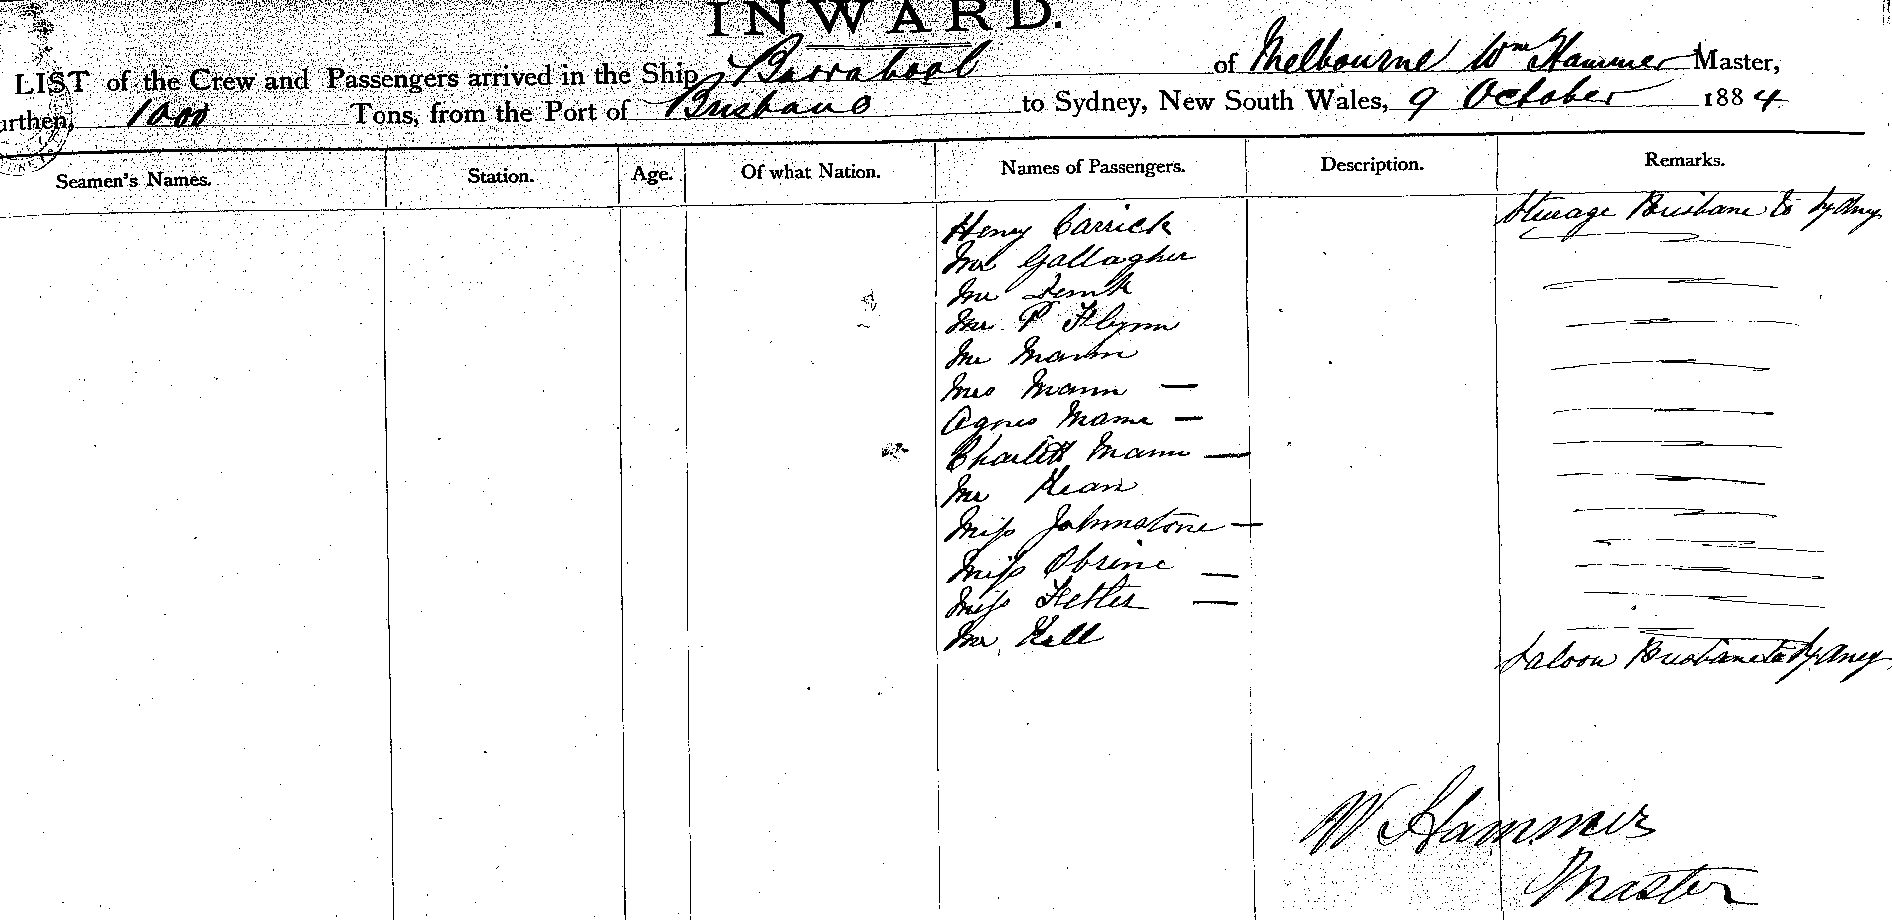 INWARD.
LIST of the Crew and Passengers arrived in the Ship Barrabool of Melbourne Wm Hammer Master,
urthen, 1000 Tons, from the Port of Brisbane to Sydney, New South Wales, 9 October 1884
Seamen's Names. Station. Age. Of what Nation. Names of Passengers. Description. Remarks.
Henry Carrick Steerage Brisbane to Sydney
Mr Gallagher
Mr
Mr P Flynn
Mr Mann
Mrs Mann —
Agnes Mann —
Charlott Mann —
Mr Kean
Miss Johnstone —
Miss Obrine —
Miss —
Mr Hall Saloon Brisbane to Sydney
W Hammer
Master